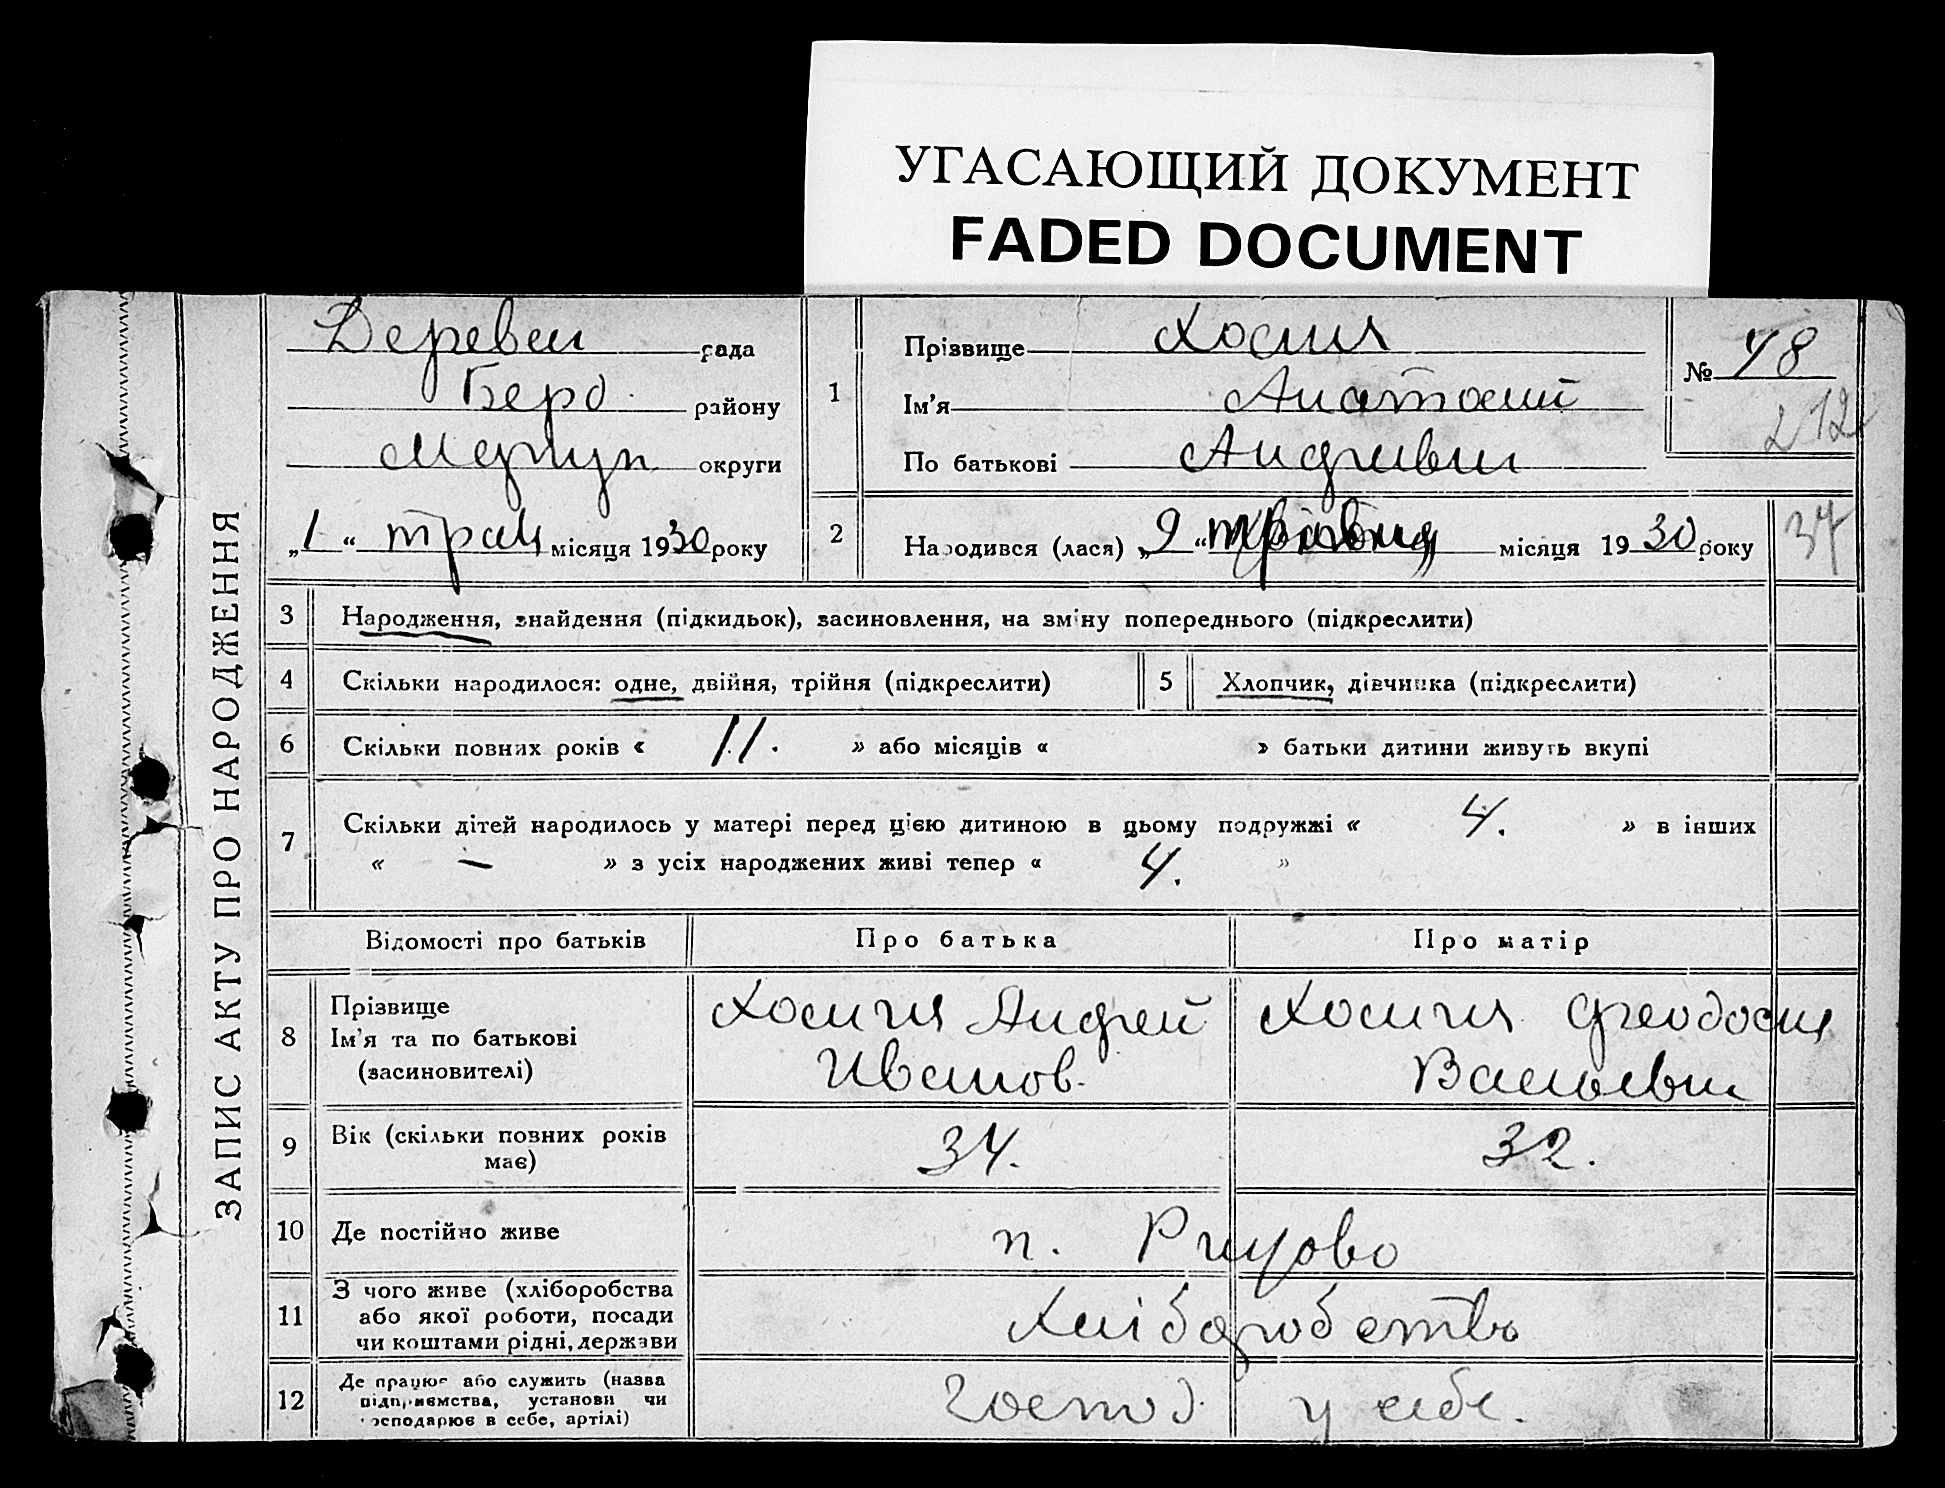 УГАСАЮЩИЙ ДОКУМЕНТ
FADED DOCUMENT
ЗАПИС АКТУ ПРО НАРОДЖЕННЯ
Деревен рада
Берд. району
округи
„1“ трав місяця 1930 року
1
Прізвище
Ім'я Анатолий
По батькові Андреевич
№ 48
212
37
2
Народився (лася) „9“ місяця 1930 року
3 Народження, знайдення (підкидьок), засиновлення, на зміну попереднього (підкреслити)
4 Скільки народилося: одне, двійня, трійня (підкреслити)
5 Хлопчик, дівчинка (підкреслити)
6 Скільки повних років « 11. » або місяців « » батьки дитини живуть вкупі
7 Скільки дітей народилось у матері перед цією дитиною в цьому подружжі « 4. » в інших
« — » з усіх народжених живі тепер « 4. »
Відомості про батьків Про батька Про матір
8 Прізвище
Ім'я та по батькові
(засиновителі)
Андрей
Иванов.
Феодосия
Васильевн
9 Вік (скільки повних років має) 34. 32.
10 Де постійно живе п.
11 З чого живе (хліборобства
або якої роботи, посади
чи коштами рідні, держави
Хліборобств
12 Де працює або служить (назва
підприємства, установи чи
господарює в себе, артілі)
Господ. у себе.